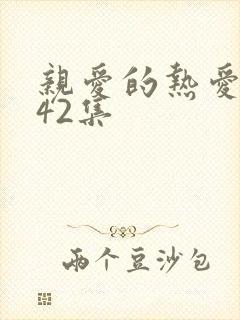 親愛的熱愛
42集
兩个豆沙包